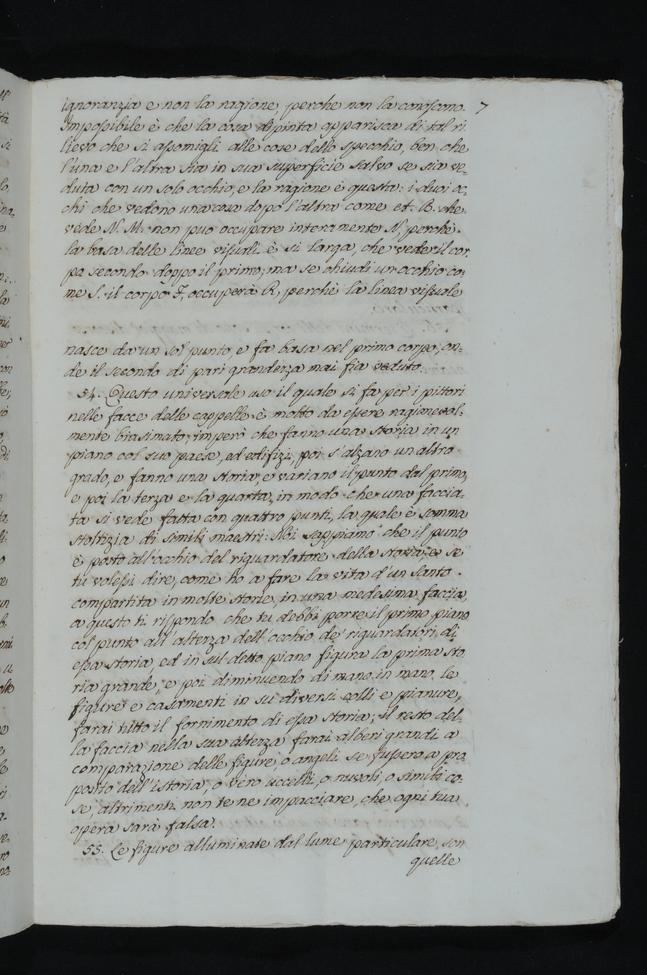 ignoranzia e non la ragione, perche non la conoscano. 7
Impossibile è che la cosa dipinta apparisca di tal ri:
lievo che si assomigli alle cose dello specchio, ben che
l'una e l'altra sia in sua superficie salvo se sia ve:
duta con un solo occhio, e la ragione è questa: i duoi oc:
chi che vedono una cosa dopo l'altra come et. B. che
vede N. M: non può occupare interamente N. perchè
la basa delle linee visuali è si larga, che vede il cor:
pa secondo doppo il primo; ma se chiudi un occhio co:
me S. il corpo F, occuperà R, perchè la linea visuale
nasce da un sol punto, e fa basa nel primo corpo, on:
de il secondo di pari grandezza mai fia veduto.
54. Questo universale uso il quale si fa per i pittori
nelle facce delle cappelle è molto da essere ragioneval:
mente biasimato; imperò che fanno una storia in un
piano col suo paese, ed edifizi, poi s'alzano un altro
grado, e fanno una storia, e variano il punto dal primo,
e poi la terza e la quarta, in modo che una faccia:
ta si vede fatta con quattro punti, la quale è somma
stoltizia di simili maestri: Noi sappiamo che il punto
è posto all'occhio del riguardatore della storia, e se
tu volessi dire, come ho a fare la vita d'un Santo
compartita in molte storie, in una medesima faccia,
a questo ti rispondo che tu debbi porre il primo piano
col punto all'altezza dell'occhio de' riguardatori di
essa storia, ed in sul detto piano figura la prima sto
ria grande, e poi diminuendo di mano in mano, le
figure e casamenti in su diversi colli e pianure,
farai tutto il fornimento di essa storia; il resto del:
la faccia nella sua altezza farai alberi grandi a
comparazione delle figure, o angeli se fussero a pro
posito dell'istoria, o vero uccelli, o nuvoli, o simili co:
se, altrimenti non te ne impacciare, che ogni tua
opera sarà falsa.
55. Le figure alluminate dal lume particulare, son
quelle